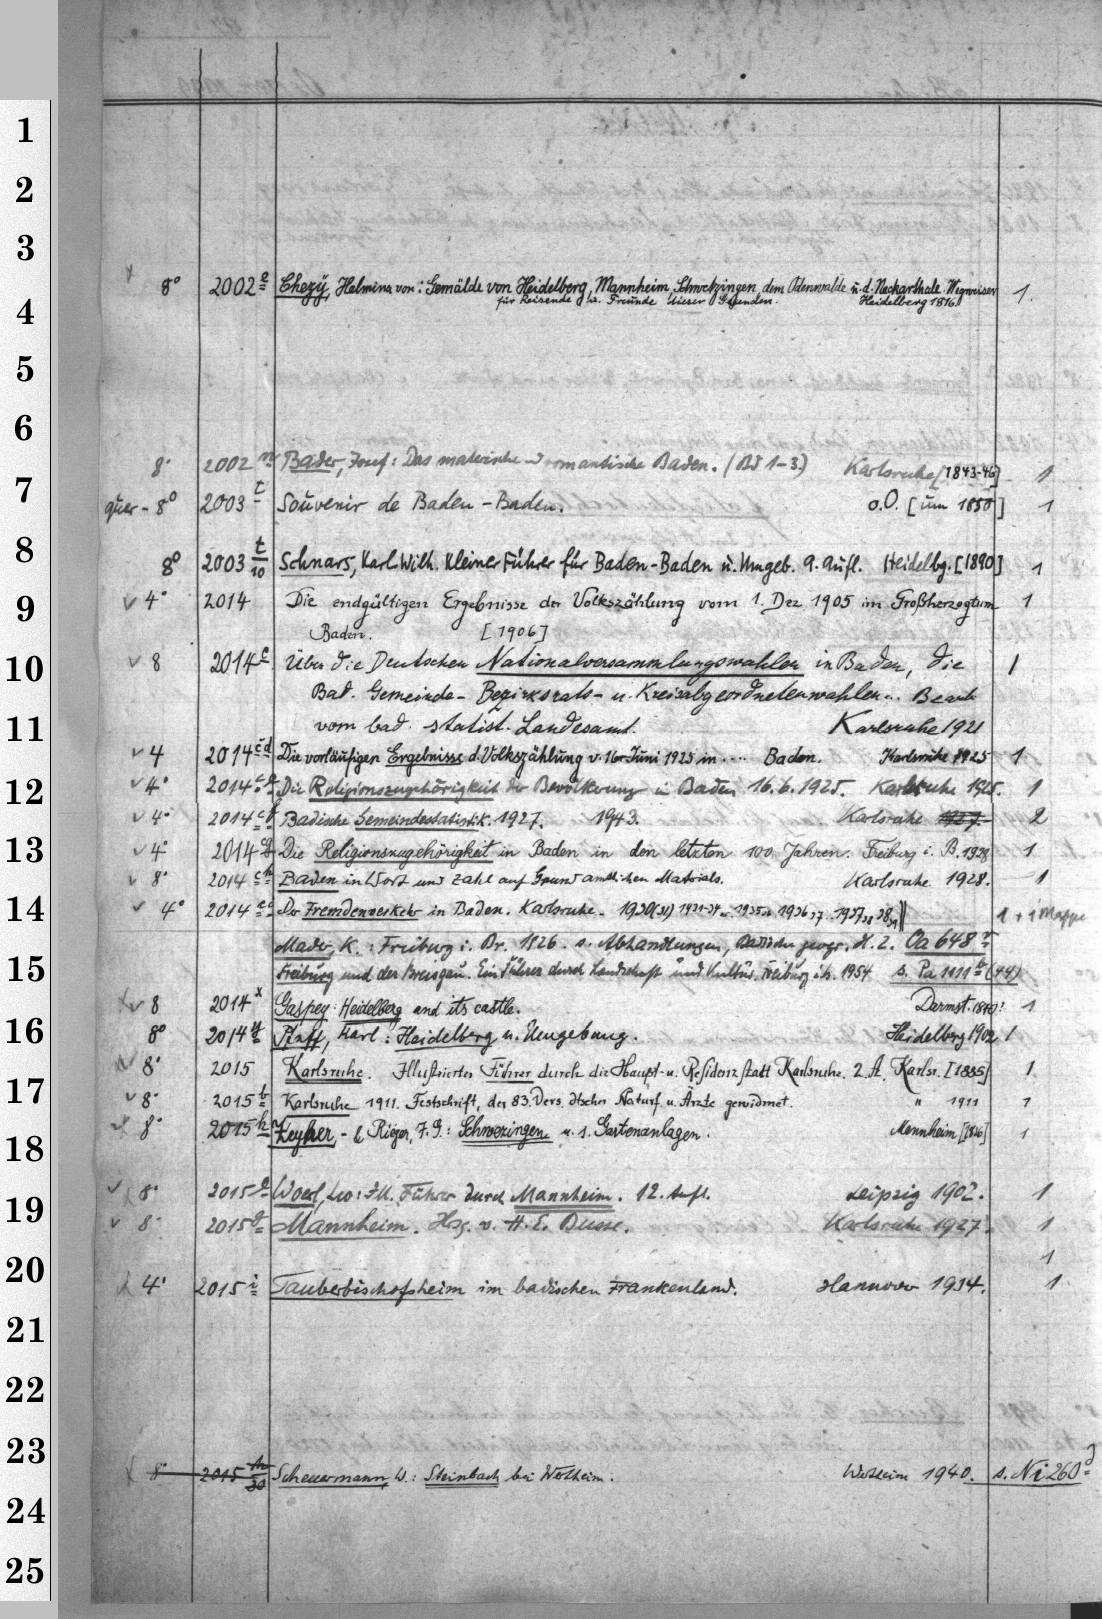 1
2
3
8° 2002 a Chezÿ, Helmina von: Gemälde von Heidelberg, Mannheim, Schwetzingen, dem Odenwalde u. d. Neckarthale. Wegweiser 1.
für Reisende u. Freunde dieser Gegenden. Heidelberg 1816.
4
5
6
8° 2002 m Bader, Josef: Das malerische u romantische Baden. (Bd 1-3.) Karlsruhe [1843-46] 1
7
quer-8° 2003 t Souvenir de Baden-Baden. o.O. [um 1850] 1
8
8° 2003 t/10 Schnars, Karl Wilh. Kleiner Führer für Baden-Baden u. Umgeb. 9. Aufl. Heidelbg. [1890] 1
9
4° 2014 Die endgültigen Ergebnisse der Volkszählung vom 1. Dez 1905 im Großherzogtum 1
Baden. [1906]
10
8 2014 c Über die Deutschen Nationalversammlungswahlen in Baden, die 1
Bad. Gemeinde- Bezirksrats- u. Kreisabgeordnetenwahlen... Bearb
11
vom bad. statist. Landesamt. Karlsruhe 1921
4 2014 c d Die vorläufigen Ergebnisse d. Volkszählung v. 16. Juni 1925 in .... Baden. Karlsruhe 1925 1
12
4° 2014 c e Die Religionszugehörigkeit der Bevölkerung in Baden 16.6.1925. Karlsruhe 1925. 1
4° 2014 c f Badische Gemeindestatistik. 1927. 1943. Karlsruhe 1927. 2
13
4° 2014 c g Die Religionszugehörigkeit in Baden in den letzten 100 Jahren. Freiburg i. B. 1928 1
8° 2014 c h Baden in Wort und Zahl auf Grund amtlichen Materials. Karlsruhe 1928. 1
14
4° 2014 Der Fremdenverkehr in Baden. Karlsruhe. 1930(31) 1 + 1 Mappe
Mader, K.: Freiburg i. Br. 1926. s. Abhandlungen, Badische geogr. H. 2. Oa 648
15
Freiburg und der Breisgau. Ein Führer durch Landschaft und Kultur. Freiburg i. B. 1954 s. Pa 1111 (44)
8 2014 x Gaspey: Heidelberg and its castle. Darmst. 1840? 1
16
8° 2014 y Pfaff, Karl: Heidelberg u. Umgebung. Heidelberg 1902 1
8° 2015 Karlsruhe. Illustrierter Führer durch die Haupt- u. Residenzstadt Karlsruhe. 2. A. Karlsr. [1885] 1
17
8° 2015 b Karlsruhe 1911. Festschrift, der 83. Vers. dtscher Naturf. u. Ärzte gewidmet. " 1911 1
8° 2015 h Zeyher, - & Rieger, F. G.: Schwezingen u. s. Gartenanlagen. Mannheim [1826] 1
18
8° 2015 Woerl, Leo: Ill. Führer durch Mannheim. 12. Aufl. Leipzig 1902. 1
19
8° 2015 g Mannheim. Hrg. v. H. E. Busse. Karlsruhe 1927. 1
1
20
4° 2015 i Tauberbischofsheim im badischen Frankenland. Hannover 1934. 1
21
22
23
8° 2015 Scheuermann, W.: Steinbach bei Wertheim. Wertheim 1940. s. Ni 260 d
24
25